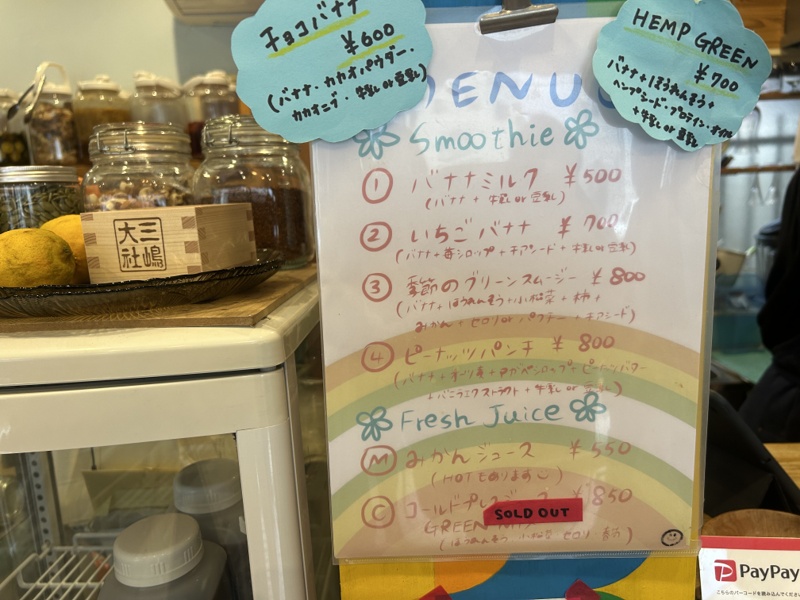 チョコバナナ
¥600
(バナナ・カカオパウダー・
カカオニブ・牛乳 or 豆乳)
HEMP GREEN
¥700
バナナ+ほうれんそう+
ヘンプシード・プロテイン・オイル
+牛乳 or 豆乳
MENU
Smoothie
① バナナミルク ¥500
(バナナ + 牛乳 or 豆乳)
② いちごバナナ ¥700
(バナナ+苺シロップ+チアシード+牛乳 or 豆乳)
③ 季節のグリーンスムージー ¥800
(バナナ+ほうれんそう+小松菜+柿+
みかん+セロリ or パクチー+チアシード)
④ ピーナッツパンチ ¥800
+バニラエクストラクト+牛乳 or 豆乳)
Fresh Juice
Ⓜ みかんジュース ¥550
(HOTもあります)
Ⓒ コールドプレスジュース ¥850
SOLD OUT
GREEN
(ほうれんそう 小松菜 セロリ
三嶋
大社
PayPay